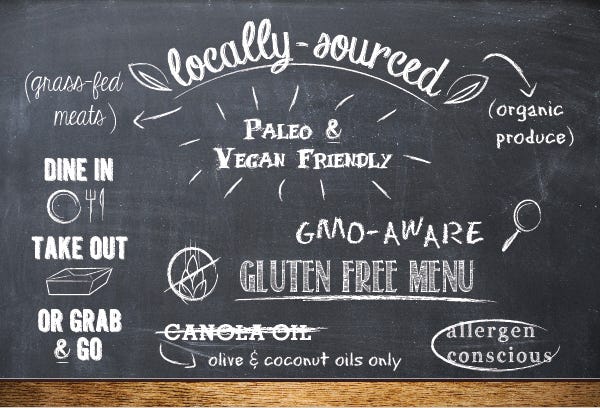 locally-sourced
(grass-fed
meats)
(organic
produce)
PALEO &
VEGAN FRIENDLY
DINE IN
TAKE OUT
OR GRAB
& GO
GMO-AWARE
GLUTEN FREE MENU
CANOLA OIL
olive & coconut oils only
allergen
conscious